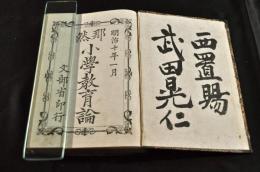 明治十年一月
那然
小學教育論
文部省印行
西置賜
武田晃仁